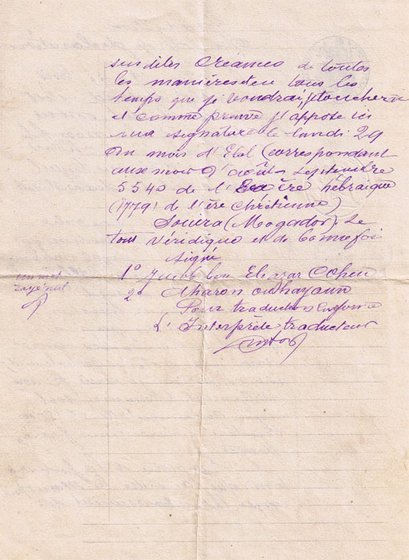 susdites créances de toutes
les manières et en tous les
temps que je voudrai, je toucherai
et comme preuve j'appose ici
ma signature le lundi 29
du mois d'Elol (correspondant
aux mois d'août, septembre
5540 de l'ère hébraïque
(1779! de l'ère chrétienne)
Souëra (Mogador) Le
tout véridique et de bonne foi
Signé
1º Judah ben Eliezer Cohen
un mot
rayé nul
2º Aharon ouhayoun
Pour traduction conforme
L'Interprète traducteur